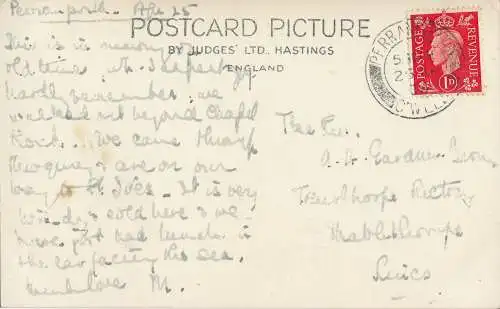 Perranporth. Apr 25
POSTCARD PICTURE
BY JUDGES' LTD. HASTINGS
ENGLAND
This is in memory of
old times wh. I expect you
hardly remember. we
walked out beyond Chapel
Rock. We came through
Newquay & are on our
way to St Ives. It is very
windy & cold here & we
have just had lunch in
the car facing the sea.
much love M.
PERRAN
5
2
CORNWALL
POSTAGE
REVENUE
1D
The Rev.
A. D. Gardner
Theddlethorpe Rectory
Mablethorpe
Lincs